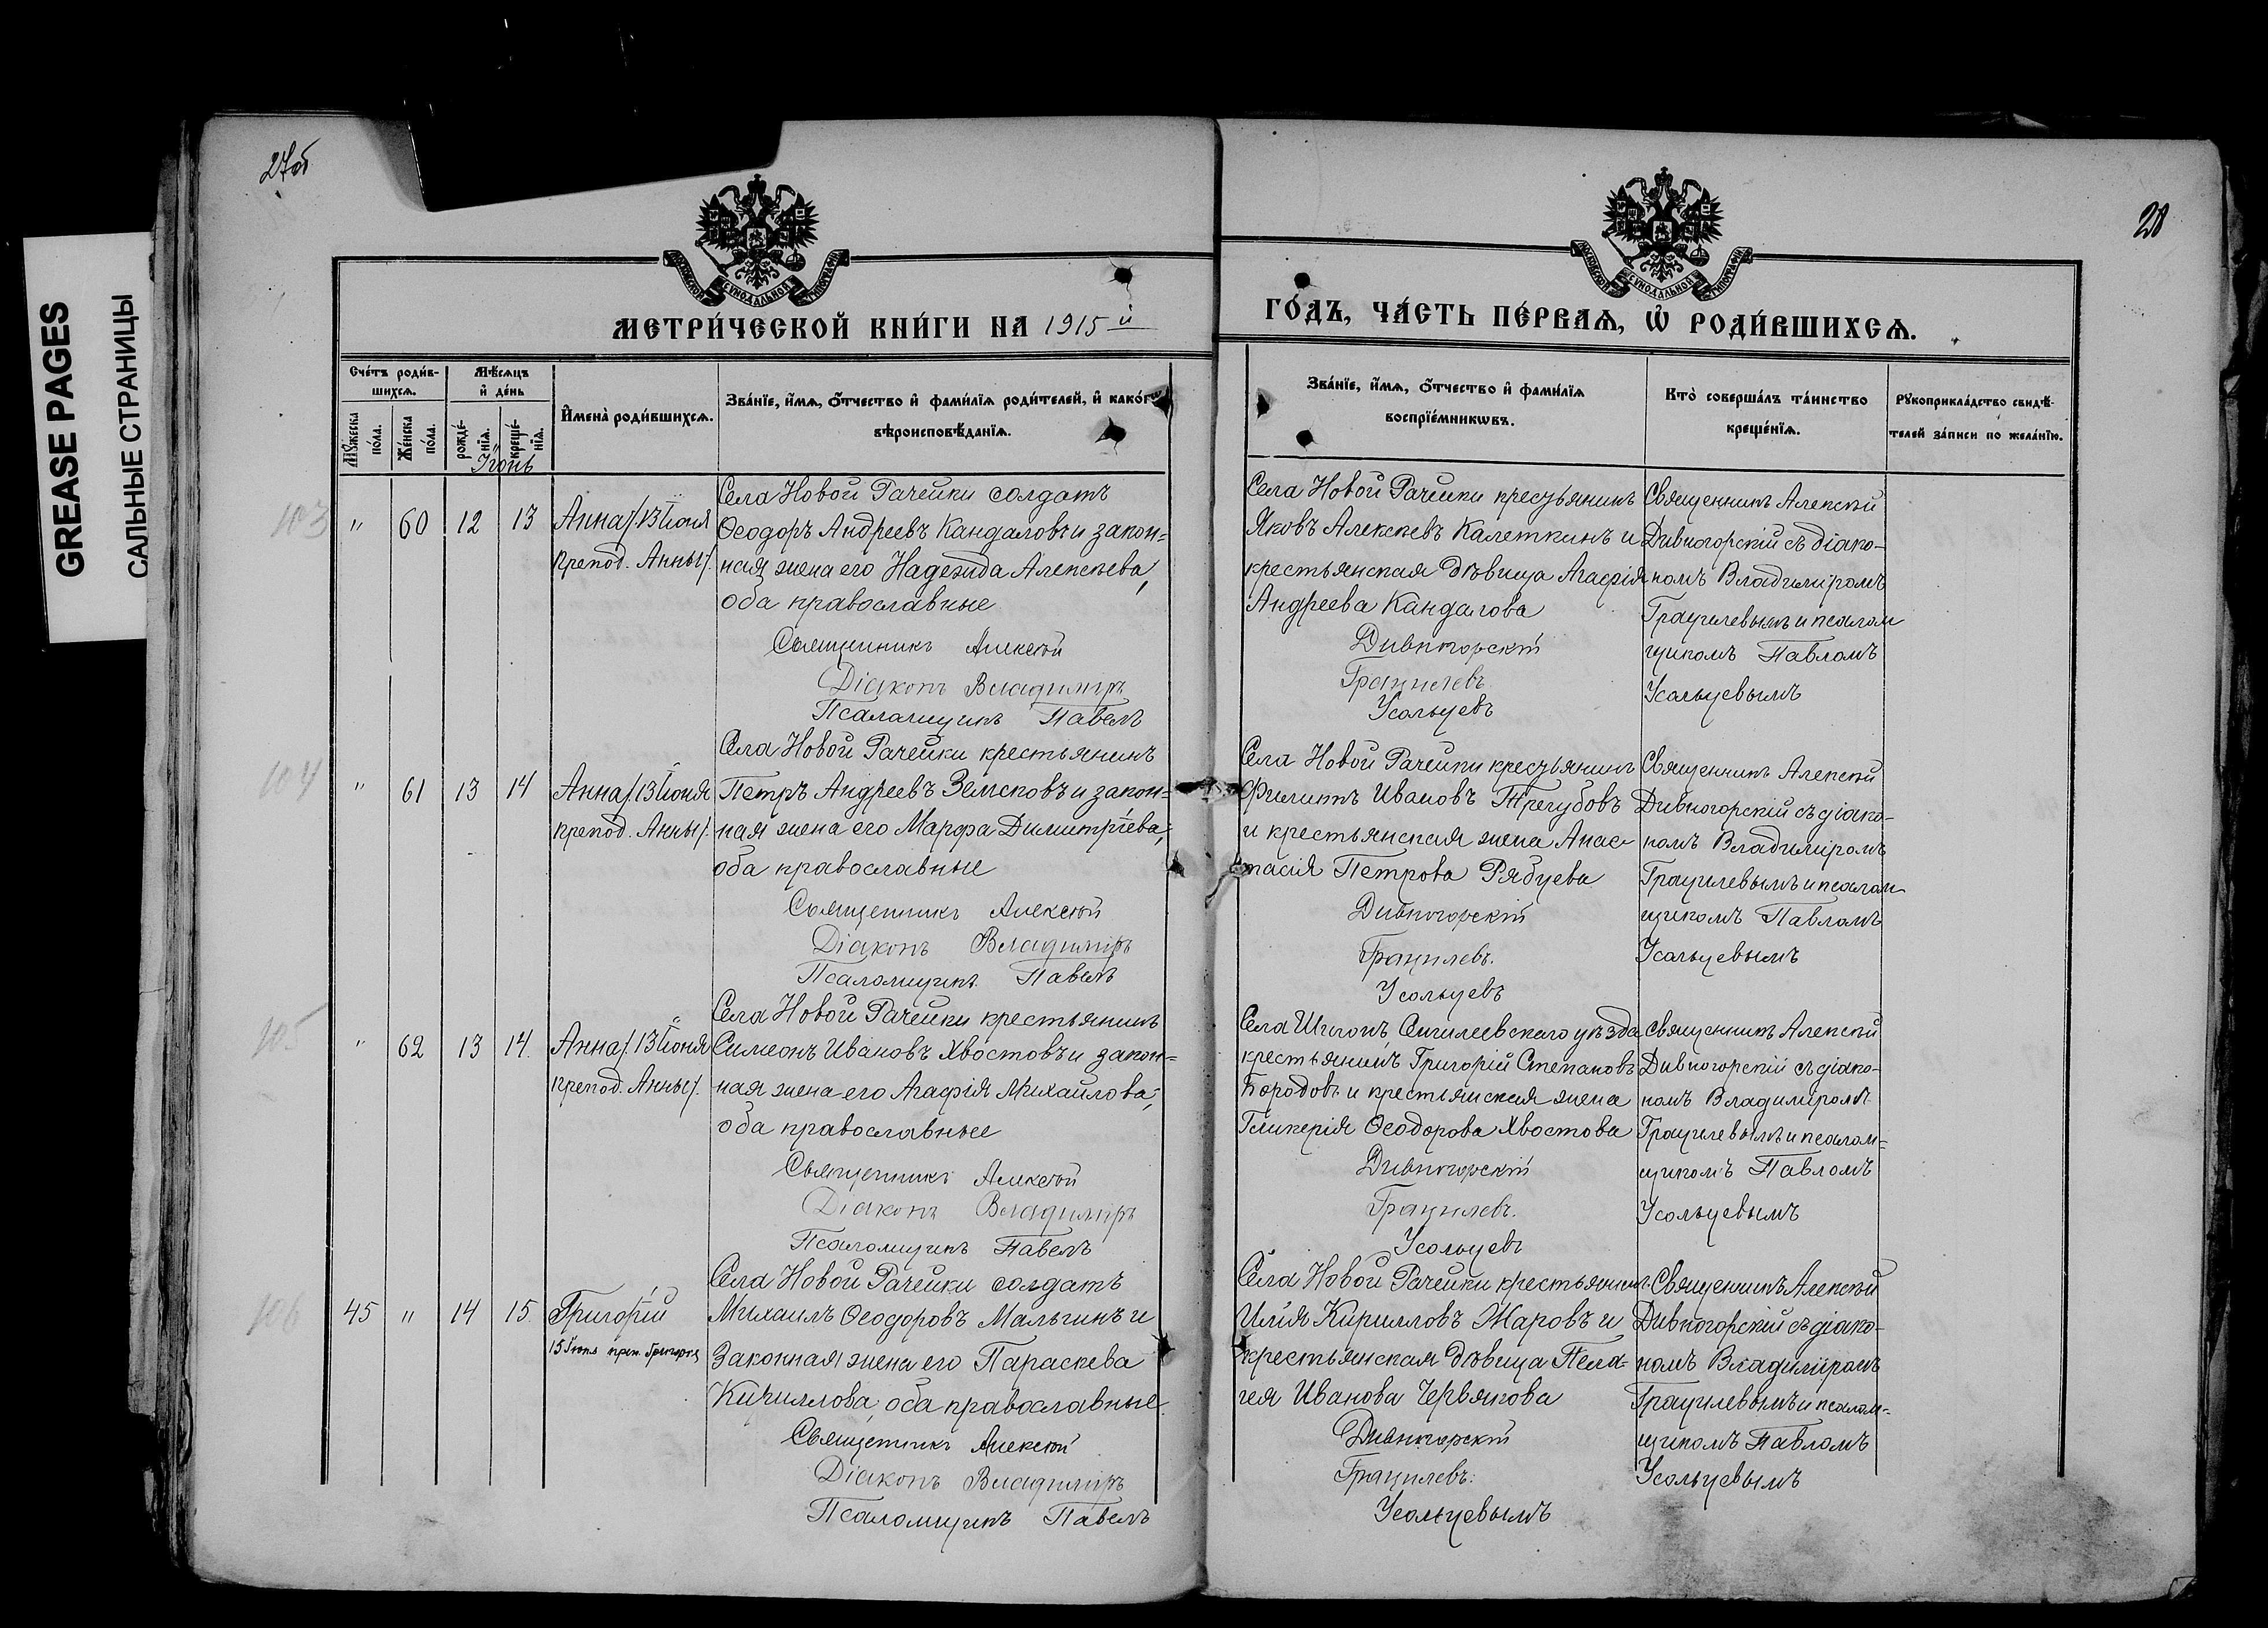 27об
28
GREASE PAGES
САЛЬНЫЕ СТРАНИЦЫ
МЕТРИ́ЧЕСКОЙ КНИ́ГИ НА 1915 й
ГО́ДЪ, ЧА́СТЬ ПЕ́РВАѦ, Ѡ҆ РОДИ́ВШИХСѦ.
Сче́тъ роди́в-
шихсѧ.
Мѣ́сѧцъ
и҆ де́нь
Мꙋ́жеска
по́ла.
Же́нска
по́ла.
рожде́-
нїѧ.
креще́-
нїѧ.
Іюнь
И҆мена̀ роди́вшихсѧ.
Зва́нїе, и҆́мѧ, ѻ҆́тчество и҆ фами́лїѧ роди́телей, и҆ како́гѡ
вѣроисповѣ́данїѧ.
Зва́нїе, и҆́мѧ, ѻ҆́тчество и҆ фами́лїѧ
воспрїе́мникѡвъ.
Кто̀ соверша́лъ та́инство
креще́нїѧ.
Рꙋкоприкла́дство свидѣ́-
телей за́писи по жела́нїю.
103
" 60 12 13
Анна /. 13 Іюня
препод. Анны /.
Села Новой Рачейки солдатъ
Ѳеодоръ Андреевъ Кандаловъ и закон=
ная жена его Надежда Алексѣева,
оба православные
Священникъ Алексѣй
Діаконъ Владиміръ
Псаломщикъ Павелъ
Села Новой Рачейки крестьянинъ
Яковъ Алексѣевъ Калеткинъ и
крестьянская дѣвица Агафія
Андреева Кандалова
Дивногорскій
Грацилевъ.
Усольцевъ
Священникъ Алексѣй
Дивногорскій съ діако-
номъ Владиміромъ
Грацилевымъ и псалом
щикомъ Павломъ
Усольцевымъ
104
" 61 13 14
Анна /. 13 Іюня
препод. Анны /.
Села Новой Рачейки крестьянинъ
Петръ Андреевъ Земсковъ и закон=
ная жена его Марфа Димитріева,
оба православные
Священникъ Алексѣй
Діаконъ Владиміръ
Псаломщикъ Павелъ
Села Новой Рачейки крестьянинъ
Филиппъ Ивановъ Трегубовъ
и крестьянская жена Анас-
тасія Петрова Рябцева
Дивногорскій
Грацилевъ.
Усольцевъ
Священникъ Алексѣй
Дивногорскій съ діако-
номъ Владиміромъ
Грацилевымъ и псалом
щикомъ Павломъ
Усольцевымъ
105
" 62 13 14.
Анна /. 13 Іюня
препод. Анны /.
Села Новой Рачейки крестьянинъ
Симеонъ Ивановъ Хвостовъ и закон=
ная жена его Агафія Михайлова,
оба православные
Священникъ Алексѣй
Діаконъ Владиміръ
Псаломщикъ Павелъ
Села Шигонъ, Сенгилеевскаго уѣзда
крестьянинъ Григорій Степановъ
Бородовъ и крестьянская жена
Гликерія Ѳеодорова Хвостова
Дивногорскій
Грацилевъ.
Усольцевъ
Священникъ Алексѣй
Дивногорскій съ діако-
номъ Владиміромъ
Грацилевымъ и псалом=
щикомъ Павломъ
Усольцевымъ
106
45 " 14 15.
Григорій
15 Іюня преп. Григорія
Села Новой Рачейки солдатъ
Михаилъ Ѳеодоровъ Малыгинъ и
законная жена его Параскева
Кириллова, оба православные.
Священникъ Алексѣй
Діаконъ Владиміръ
Псаломщикъ Павелъ
Села Новой Рачейки крестьянинъ
Илія Кирилловъ Жаровъ и
крестьянская дѣвица Пела-
гея Иванова Червякова
Дивногорскій
Грацилевъ.
Усольцевымъ
Священникъ Алексѣй
Дивногорскій съ діако-
номъ Владиміромъ
Грацилевымъ и псалом-
щикомъ Павломъ
Усольцевымъ